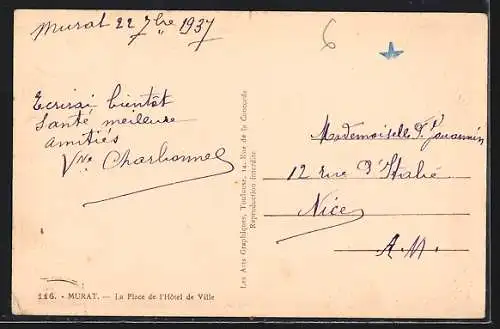 Murat 22 7bre 1937
6
Ecrirai bientôt
Santé meilleure
amitiés
Vve Charbonnel
Les Arts Graphiques, Toulouse, 14, Rue de la Concorde
Reproduction Interdite.
Mademoiselle
12 rue d'Italie
Nice
A.M.
116. - MURAT. — La Place de l'Hôtel de Ville